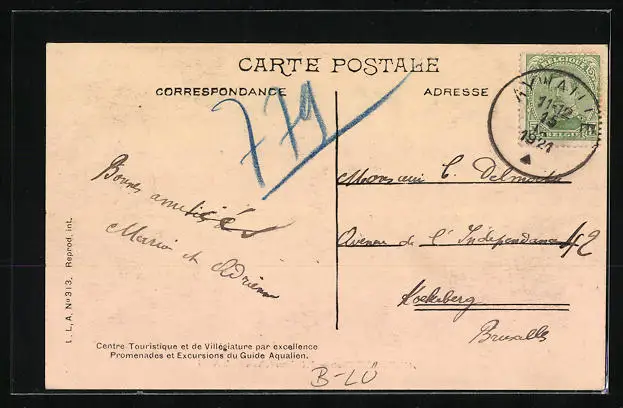 CARTE POSTALE
CORRESPONDANCE
ADRESSE
779
BELGIQUE
BELGIË
AYWAILLE
11-12
15
1921
Bonnes amitiés
Maria et Adrienne
Monsieur C. Delmotte
Avenue de l'Indépendance 42
Koekelberg
Bruxelles
L. L. A. Nº 313. Reprod. int.
Centre Touristique et de Villégiature par excellence
Promenades et Excursions du Guide Aqualien.
B-LÜ